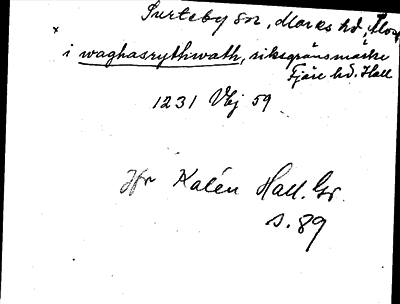 Surteby sn, Marks hd, Älvsb
x i waghasrythwath, riksgränsmärke
Fjäre hd. Hall
1231 Vbj 59
Jfr Kalén Hall. Gr.
s. 89